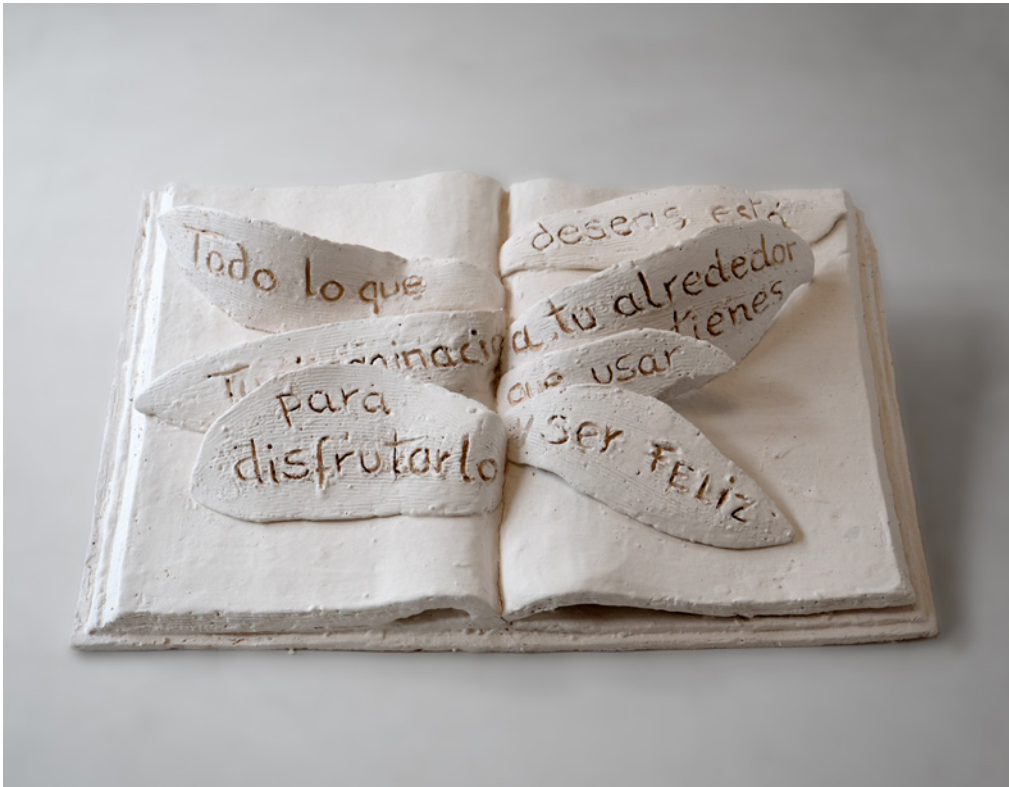 Todo lo que
deseas está
a tu alrededor
tienes
que usar
para
disfrutarlo
y SER FELIZ.